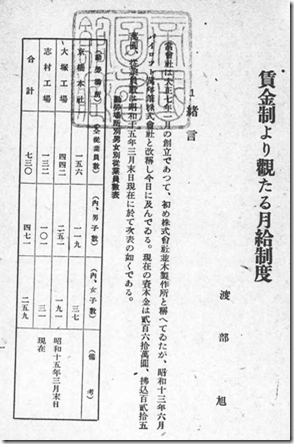 賃金制より觀たる月給制度
渡部旭
1 緒言
當會社は大正七年一月の創立であつて、初め株式會社並木製作所と稱へてゐたが、昭和十三年六月
パイロツト萬年筆株式會社と改稱し今日に及んでゐる。現在の資本金は貳百六拾萬圓、拂込百貳拾五
萬圓、從業員數は昭和十五年三月末日現在に於て次表の如くである。
勤勞場所別男女別從業員數表
(勤勞場所) (全從業員數) (内、男子數) (内、女子數) (備考)
京橋本社 一五六 一一九 三七
大塚工場 四四二 二五一 一九一
志村工場 一三二 一〇一 三一
合計 七三〇 四七一 二五九
昭和十五年三月末日
現在